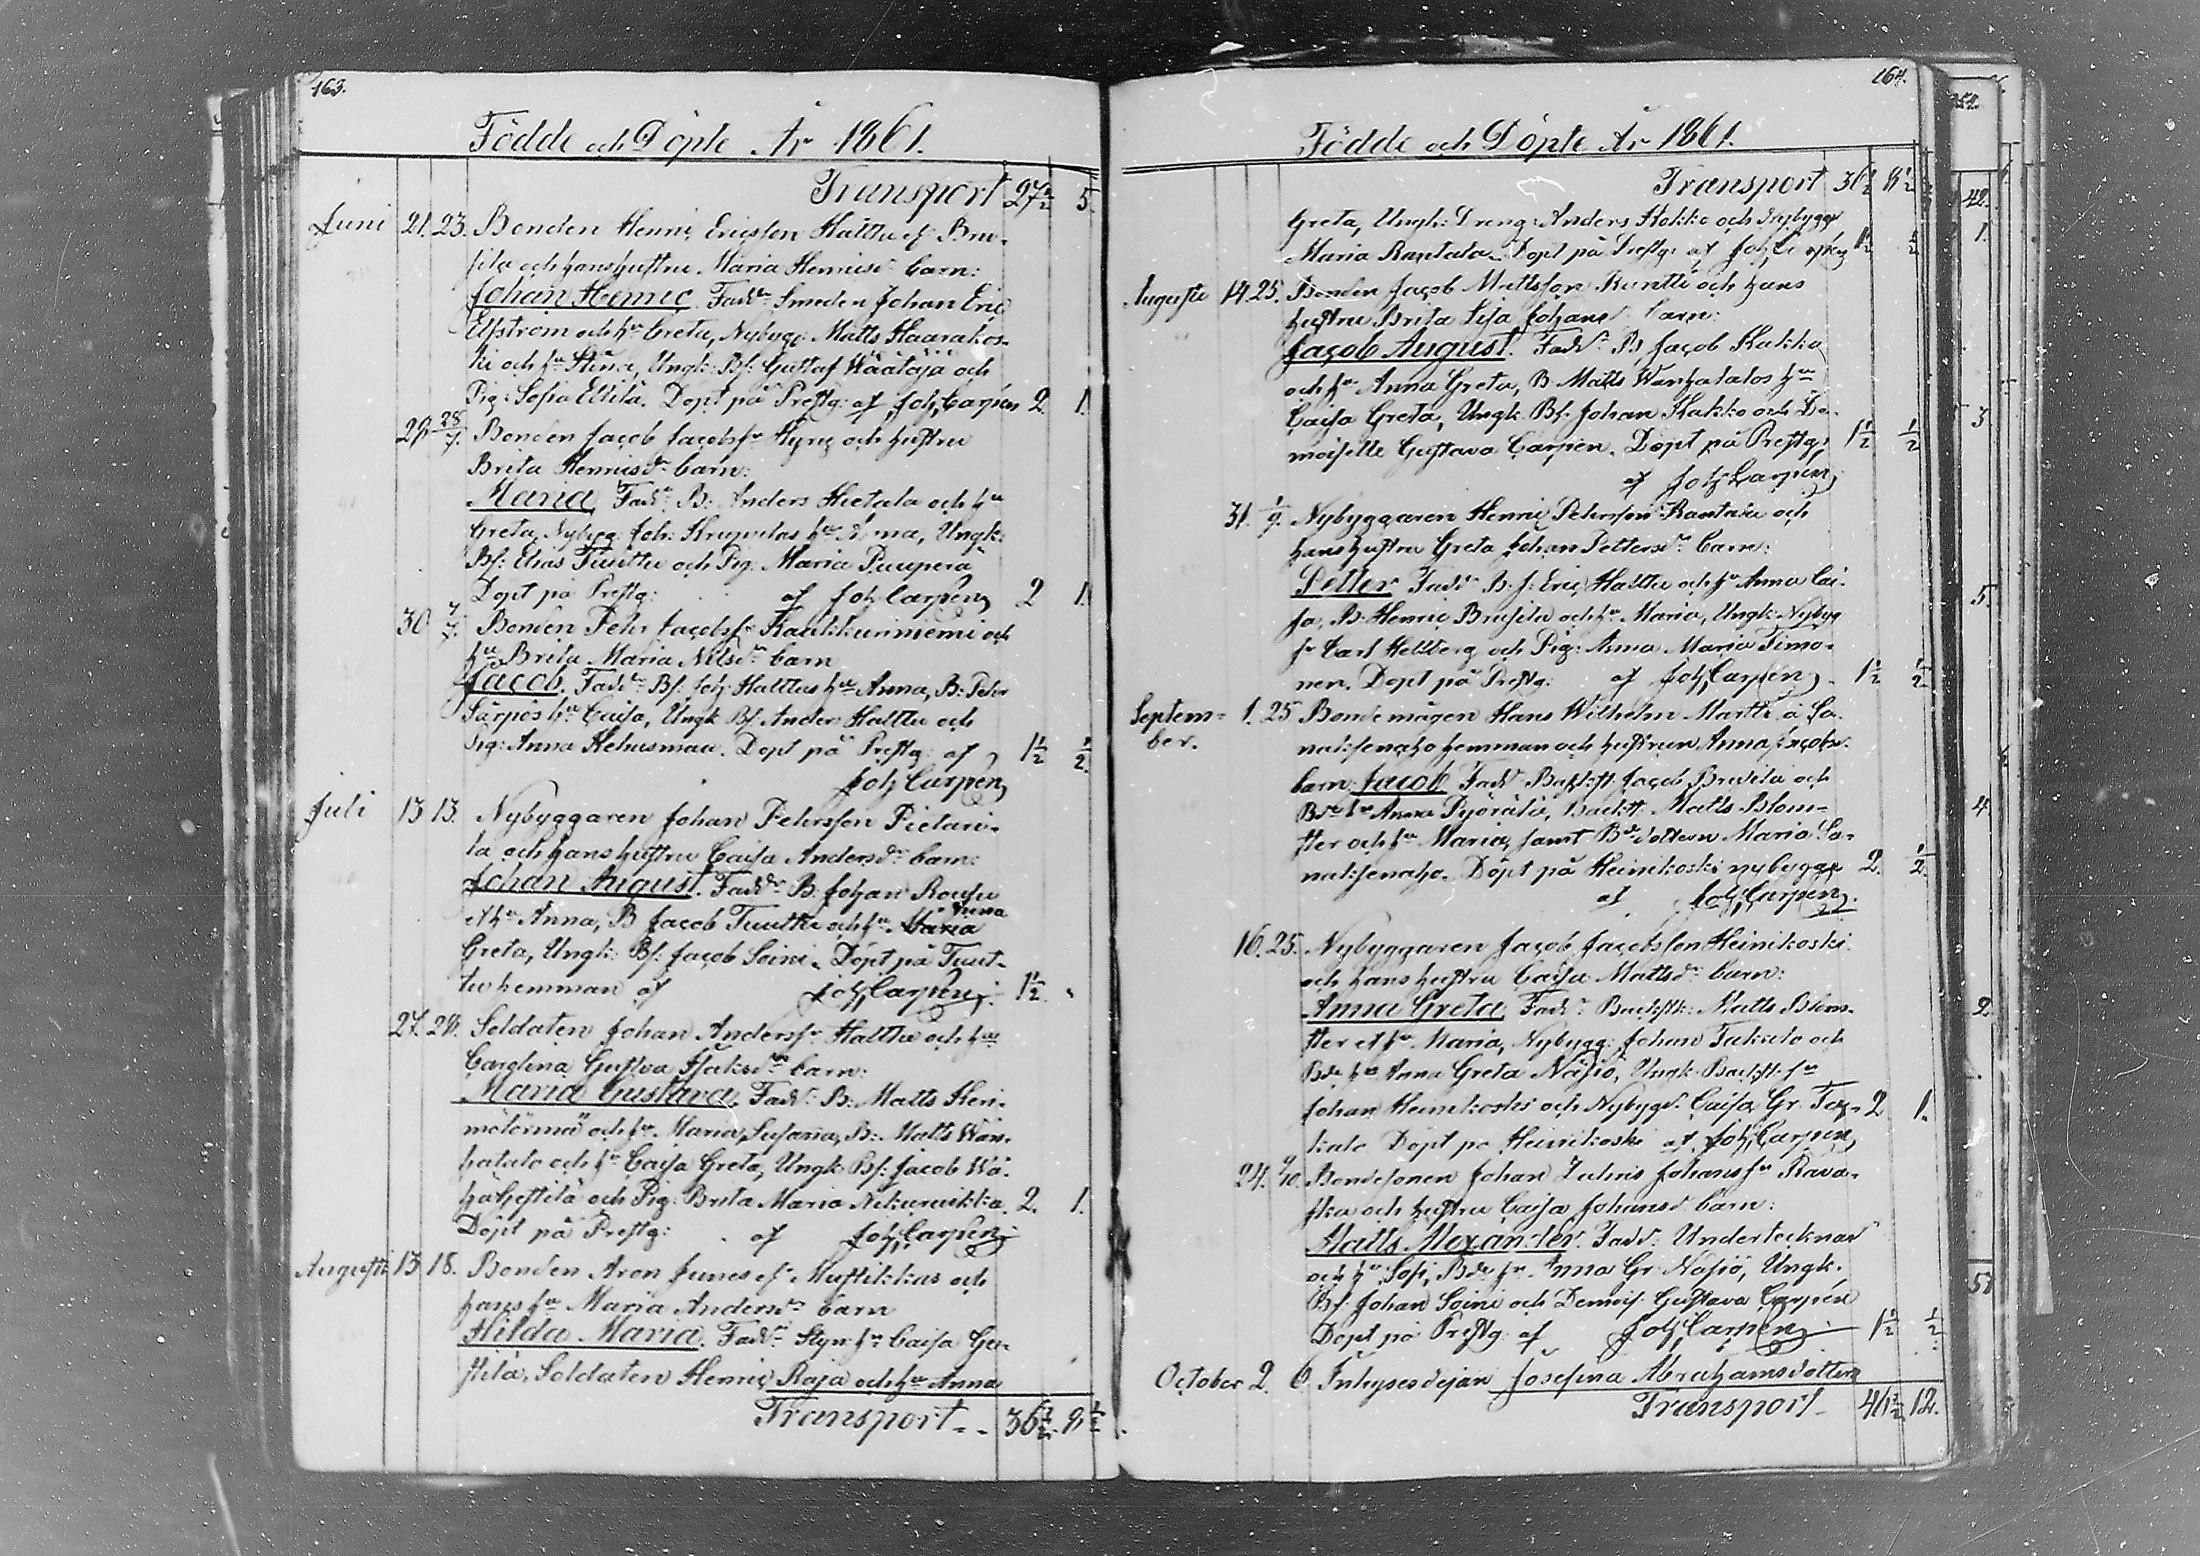 163.
Födde och Döpte År 1861.
Transport 27½ 5.
Juni 21. 23. Bonden Henric Ericsson Halttu ef. Bru-
sila och hans hustru Maria Henrics dr barn:
Johan Henric. Fadd: Smeden Johan Eric
Elfström och hu Greta, Nybygg: Matts Haarakos-
ki och hu Stina, Ungk: Bs: Gustaf Wäätäjä och
Pig: Sofia Ellilä. Döpt på Prestg: af Joh Carpén 2 1.
29. 28/7. Bonden Jacob Jacobss Kyng och hustru
Brita Henrics dr barn:
Maria. Fadd: B: Anders Hietala och hu
Greta, Nybygg: Joh: hu Ungk:
Bs: Elias Tuuttu och Pig: Maria Puuperä
Döpt på Prestg: af Joh Carpén 2 1.
30 7/7. Bonden Pehr Jacobss Raukkuniemi och
hu Brita Maria Nilsdr barn
Jacob. Fadd: Bs: Joh Halttus hu Anna, B: Pehr
Särpös hu Caisa, Ungk Bs Anders Halttu och
Pig: Anna Kehusmaa. Döpt på Prestg: af 1½ ½.
Joh Carpén
Juli 13 13. Nybyggaren Johan Pehrsson Pietari-
la och hans hustru Caisa Andersdr barn:
Johan August. Fadd: B: Johan Rousu
et hu Anna, B Jacob Tuuttu och hu Maria Anna
Greta, Ungk: Bs: Jacob Soini. Döpt på Tuut-
tu hemman af Joh Carpén. 1½.
27. 28. Soldaten Johan Anderss Halttu och hu
Carolina Gustva Isaksdr barn:
Maria Gustava. Fadd: B: Matts Keri-
mölörmä och hu Maria B: Matts Wan-
hatalo och hu Caisa Greta, Ungk: Bs: Jacob Wä-
hähestilä och Pig: Brita Maria 2. 1.
Döpt på Prestg: af Joh Carpén
Augusti 13 18. Bonden Aron Junes ef. Mustikkas och
hans hu Maria Andersdr barn
Hilda Maria. Fadd: hu Caisa Gu-
stilä, Soldaten Henric Raja och hu Anna
Transport - - 36½. 8½
164.
Födde och Döpte År 1861.
Transport 36½ 8½
Greta, Ungk: Dreng: Anders Kokko och Nybygg
Maria Rantala. Döpt på Prestg: af Joh Carpén 1½ ½
Augusti 14. 25. Bonden Jacob Mattsson Runtti och hans
hustru Brita Lisa Johansd barn:
Jacob August. Fadd: B Jacob Kakko
och hu Anna Greta, B Matts Wanhatalos hu
Caisa Greta, Ungk Bs: Johan Kakko och De-
moiselle Gustava Carpén. Döpt på Prestg: 1½ ½
af Joh Carpén
31. 1/9. Nybyggaren Henric Pehrsson Rantala och
hans hustru Greta Johan Pettersdr barn:
Petter. Fadd: B. J: Eric Halttu och hu Anna Cai-
sa, B: Henric Brusila och hu Maria, Ungk: Nybyg
sn Carl Hellberg och Pig: Anna Maria Timo-
nen. Döpt på Prestg: af Joh Carpén. 1½ ½
Septem- 1. 25 Bondemågen Hans Wilhelm Martti å Sa-
ber. naksenaho hemman och hustrun Anna Jacobsd
barn: Jacob. Fadd: Backstt Jacob Brusila och
Bde hu Anna Pyörälä, Backstt. Matts Blom-
ster och hu Maria, samt Bdedottern Maria Sa-
naksenaho. Döpt på Heinikoski nybygge 2. ½.
af Joh Carpén.
16. 25. Nybyggaren Jacob Jacobsson Heinikoski
och hans hustru Caisa Mattsdr barn:
Anna Greta. Fadd: Backstt: Matts Blom-
ster et hu Maria, Nybygg: Johan Takalo och
Bde hu Anna Greta Näsiö, Ungk Backst. sn
Johan Heinikoski och Nybygd. Caisa Gr. Ta- 2 1.
kalo Döpt på Heinikoski af Joh Carpén
24. Bondesonen Johan Julius Johanss Rava-
ska och hustru Caisa Johansd barn:
Matts Alexander. Fadd: Undertecknad
och hu Sofi, Bde hu Anna Gr: Näsiö, Ungk.
Bs: Johan Soini och Demois: Gustava Carpén
Döpt på Prestg: af Joh Carpén 1½ ½.
October 2. 6. Inhysesdejan Josefina Abrahamsdotters
Transport - 46½ 12.
42.
1.
3.
5.
4.
2.